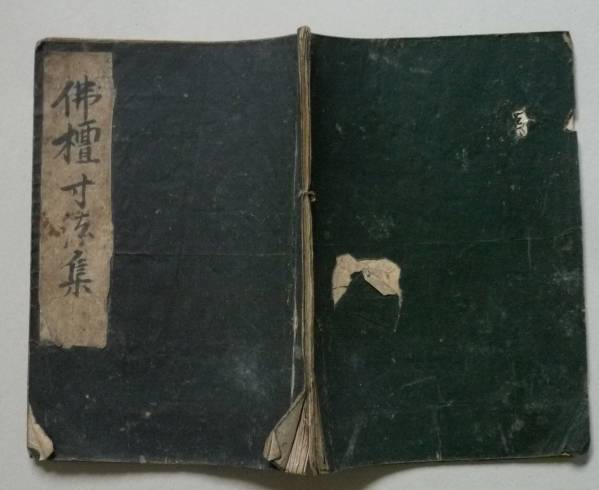 佛檀寸法集